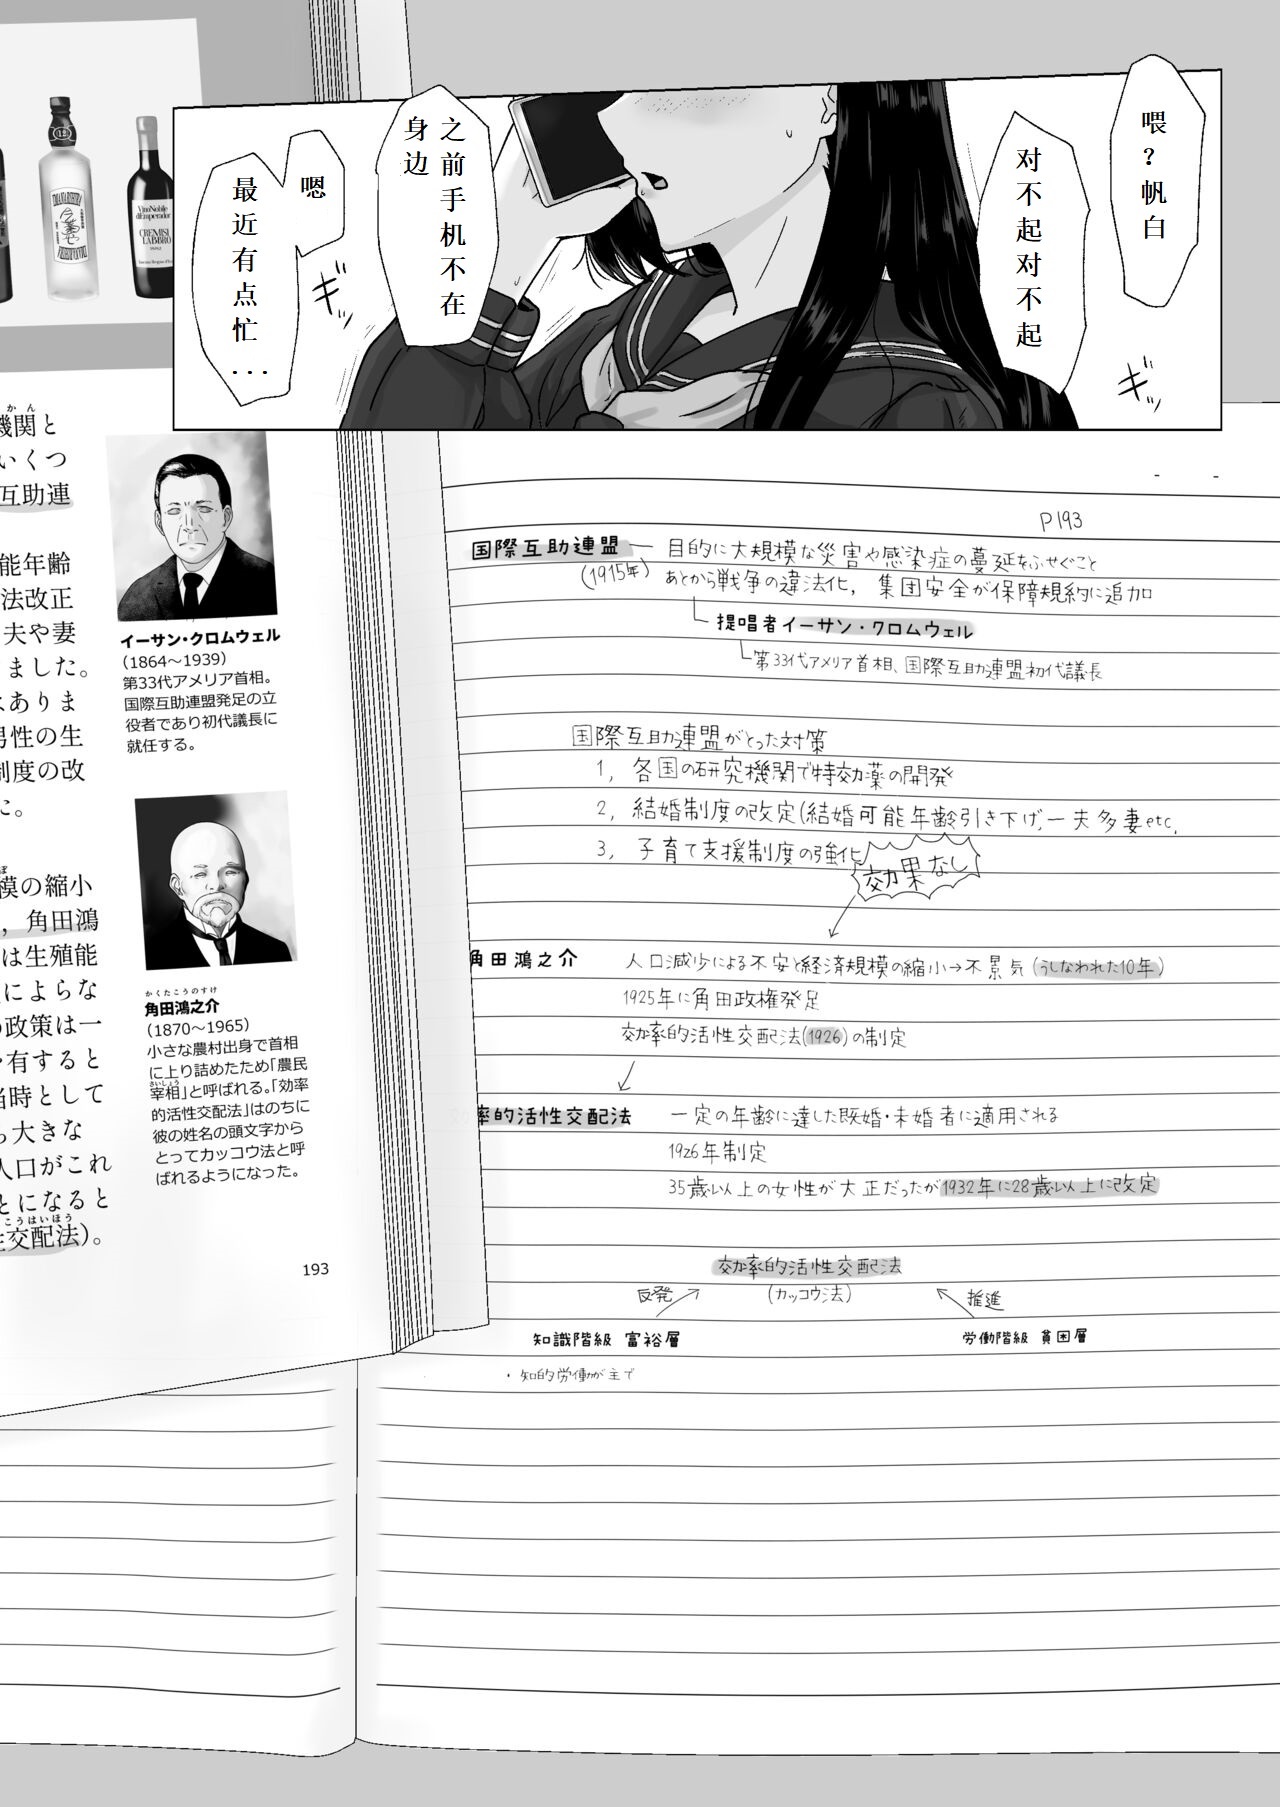 喂？帆白
对不起对不起
之前手机不在
身边
嗯
最近有点忙...
ギッ
ギッ
12
VinoNobile
dEmperador
CREMISI
LABBRO
かん
機関と
いくつ
互助連
能年齢
法改正
夫や妻
りました。
はありま
男性の生
制度の改
た。
模の縮小
，角田鴻
は生殖能
によらな
の政策は一
や有すると
当時として
も大きな
人口がこれ
とになると
こうはいほう
性交配法）。
イーサン・クロムウェル
（1864～1939）
第33代アメリア首相。
国際互助連盟発足の立
役者であり初代議長に
就任する。
かくたこうのすけ
角田鴻之介
（1870～1965）
小さな農村出身で首相
に上り詰めたため「農民
さいしょう
宰相」と呼ばれる。「効率
的活性交配法」はのちに
彼の姓名の頭文字から
とってカッコウ法と呼
ばれるようになった。
193
P193
国際互助連盟 ― 目的に大規模な災害や感染症の蔓延をふせぐこと
(1915年) あとから戦争の違法化，集団安全が保障規約に追加
提唱者イーサン・クロムウェル
第33代アメリア首相、国際互助連盟初代議長
国際互助連盟がとった対策
1，各国の研究機関で特効薬の開発
2，結婚制度の改定(結婚可能年齢引き下げ、一夫多妻etc,
3，子育て支援制度の強化
効果なし
角田鴻之介 人口減少による不安と経済規模の縮小→不景気(うしなわれた10年)
1925年に角田政権発足
効率的活性交配法(1926)の制定
効率的活性交配法 一定の年齢に達した既婚・未婚者に適用される
1926年制定
35歳以上の女性が大正だったが1932年に28歳以上に改定
効率的活性交配法
(カッコウ法)
反発
推進
知識階級 富裕層
労働階級 貧困層
・知的労働が主で